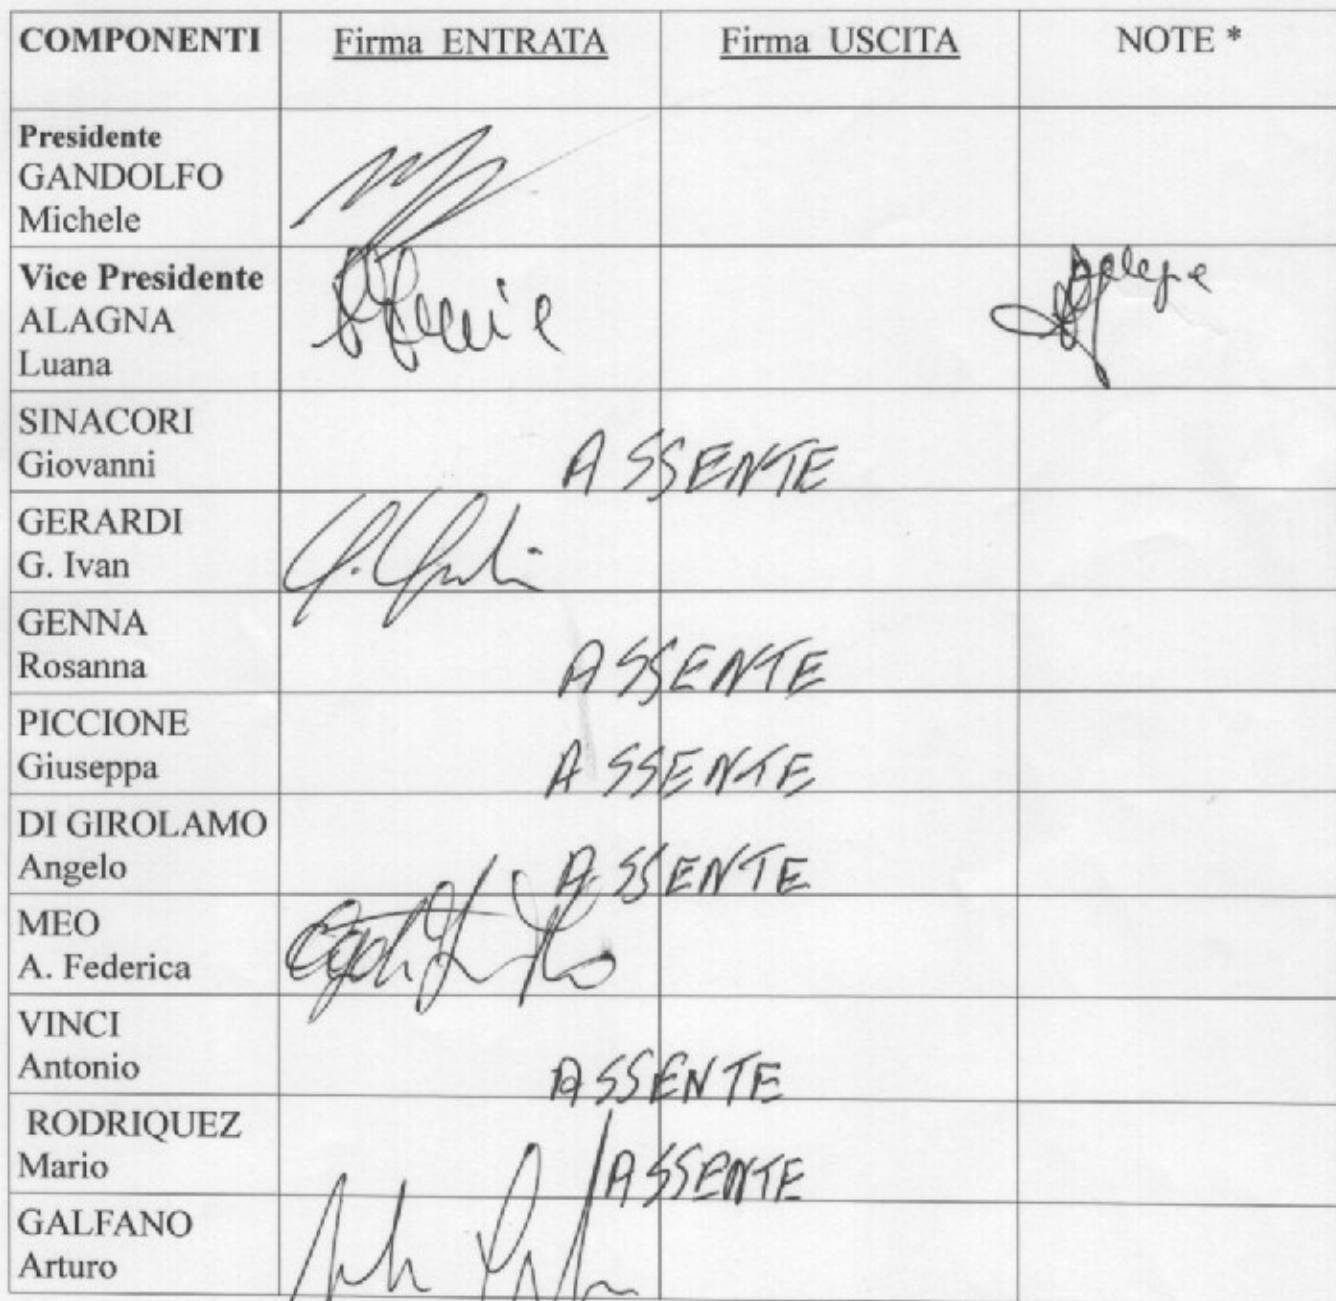 COMPONENTI Firma ENTRATA Firma USCITA NOTE *
Presidente
GANDOLFO
Michele
Vice Presidente
ALAGNA
Luana
SINACORI
Giovanni
ASSENTE
GERARDI
G. Ivan
GENNA
Rosanna
ASSENTE
PICCIONE
Giuseppa
ASSENTE
DI GIROLAMO
Angelo
ASSENTE
MEO
A. Federica
VINCI
Antonio
ASSENTE
RODRIQUEZ
Mario
ASSENTE
GALFANO
Arturo